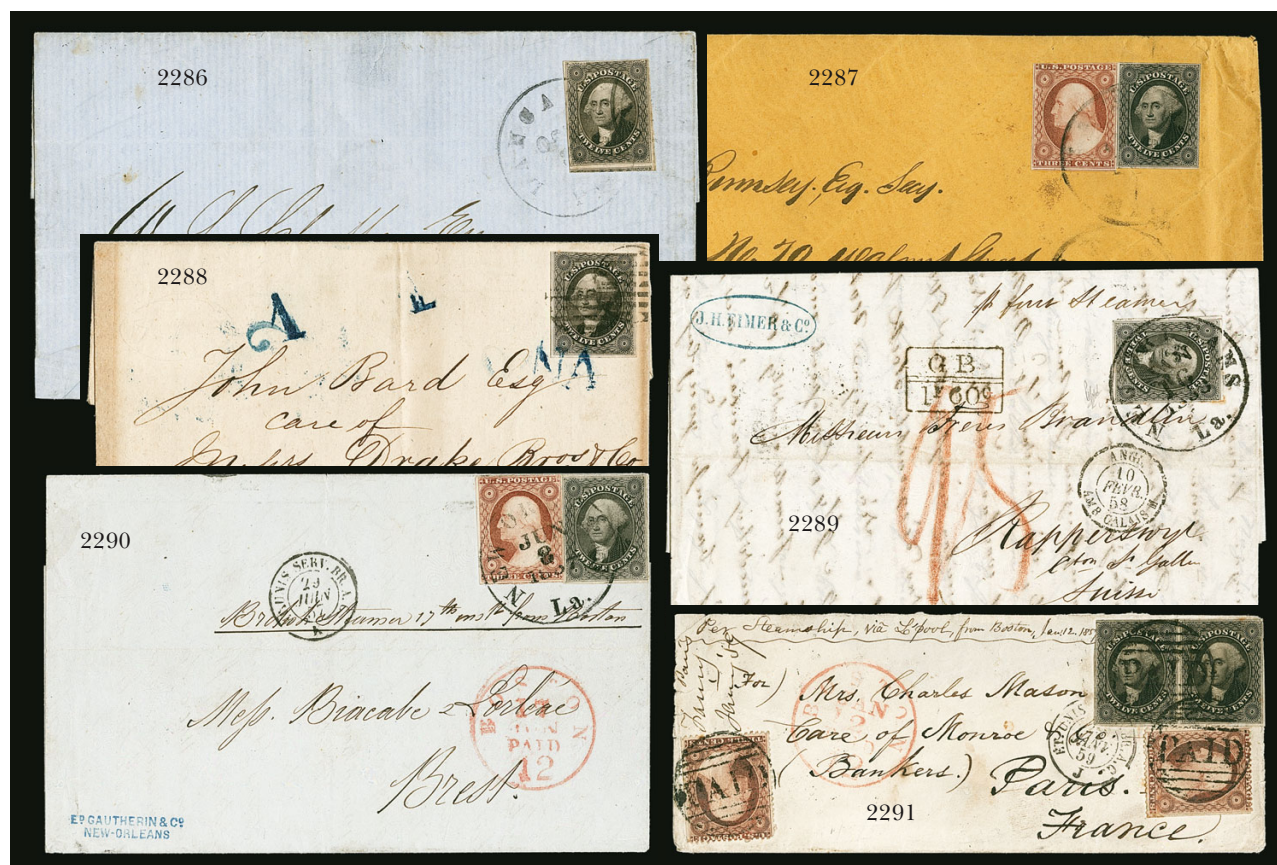 2286
U.S. POSTAGE
TWELVE CENTS
2287
U.S. POSTAGE
THREE CENTS
U.S. POSTAGE
TWELVE CENTS
Rumsey, Esq. Say.
No. 70 Walnut Street
2288
U.S. POSTAGE
TWELVE CENTS
NA
John Bard Esq
care of
Messrs Drake Bros & Co
J. H. EIMER & Co.
p four Steamers
G B
1F 60c
U.S. POSTAGE
TWELVE CENTS
La.
Messieurs Freres Brandlin
10
FEVR.
58
AMB. CALAIS
2289
Rapperswyl
Cton St Gallen
Suisse
2290
U.S. POSTAGE
THREE CENTS
U.S. POSTAGE
TWELVE CENTS
La.
SERV. BR.
29
JUIN
British Steamer 17th inst from Boston
Mess. Biacabe & Lorbae
BOSTON
PAID
12
Brest.
ED. GAUTHERIN & Co.
NEW-ORLEANS
Per Steamship, via L'pool, from Boston, Jan. 12. 185
U.S. POSTAGE
TWELVE CENTS
U.S. POSTAGE
TWELVE CENTS
(For) Mrs. Charles Mason
Care of Monroe &
(Bankers.) Paris.
France.
PAID
PAID
59
2291